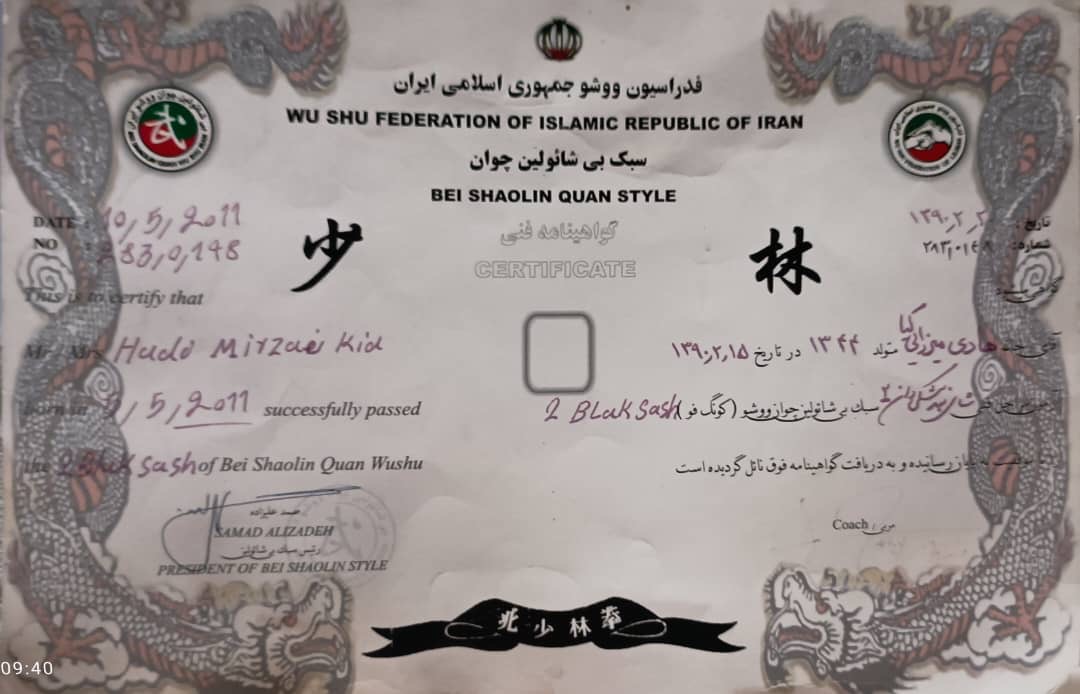 فدراسیون ووشو جمهوری اسلامی ایران
WU SHU FEDERATION OF ISLAMIC REPUBLIC OF IRAN
سبک بی شائولین چوان
BEI SHAOLIN QUAN STYLE
گواهینامه فنی
CERTIFICATE
少 林
武
DATE : 10,5,2011
NO : 283,0,148
تاریخ :
شماره:
This is to certify that
Mr / Mrs Hado Mirzaei Kia
هادی میرزایی کیا متولد ۱۳۴۴ در تاریخ ۱۳۹۰,۲,۱۵
Born in 5,5,2011 successfully passed
سبک بی شائولین چوان ووشو (کونگ فو) 2 BLak Sash
the 2 Blak Sash of Bei Shaolin Quan Wushu
پایان رسانیده و به دریافت گواهینامه فوق نائل گردیده است
صمد علیزاده
SAMAD ALIZADEH
رئیس سبک بی شائولین
PRESIDENT OF BEI SHAOLIN STYLE
Coach / مربی
北 少 林 拳
09:40